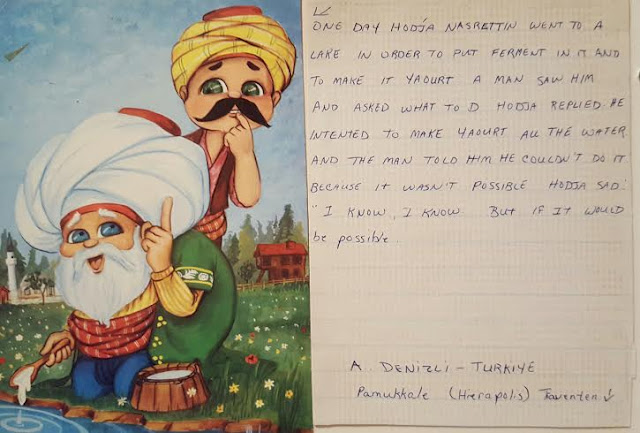 ONE DAY HODJA NASRETTIN WENT TO A
LAKE IN ORDER TO PUT FERMENT IN IT AND
TO MAKE IT YAOURT A MAN SAW HIM
AND ASKED WHAT TO D HODJA REPLIED HE
INTENTED TO MAKE YAOURT ALL THE WATER
AND THE MAN TOLD HIM HE COULDN'T DO IT
BECAUSE IT WASN'T POSSIBLE HODJA SAD:
"I KNOW, I KNOW BUT IF IT WOULD
be possible.
A. DENIZLI - TURKIYE
Pamukkale (Hierapolis) Traventen